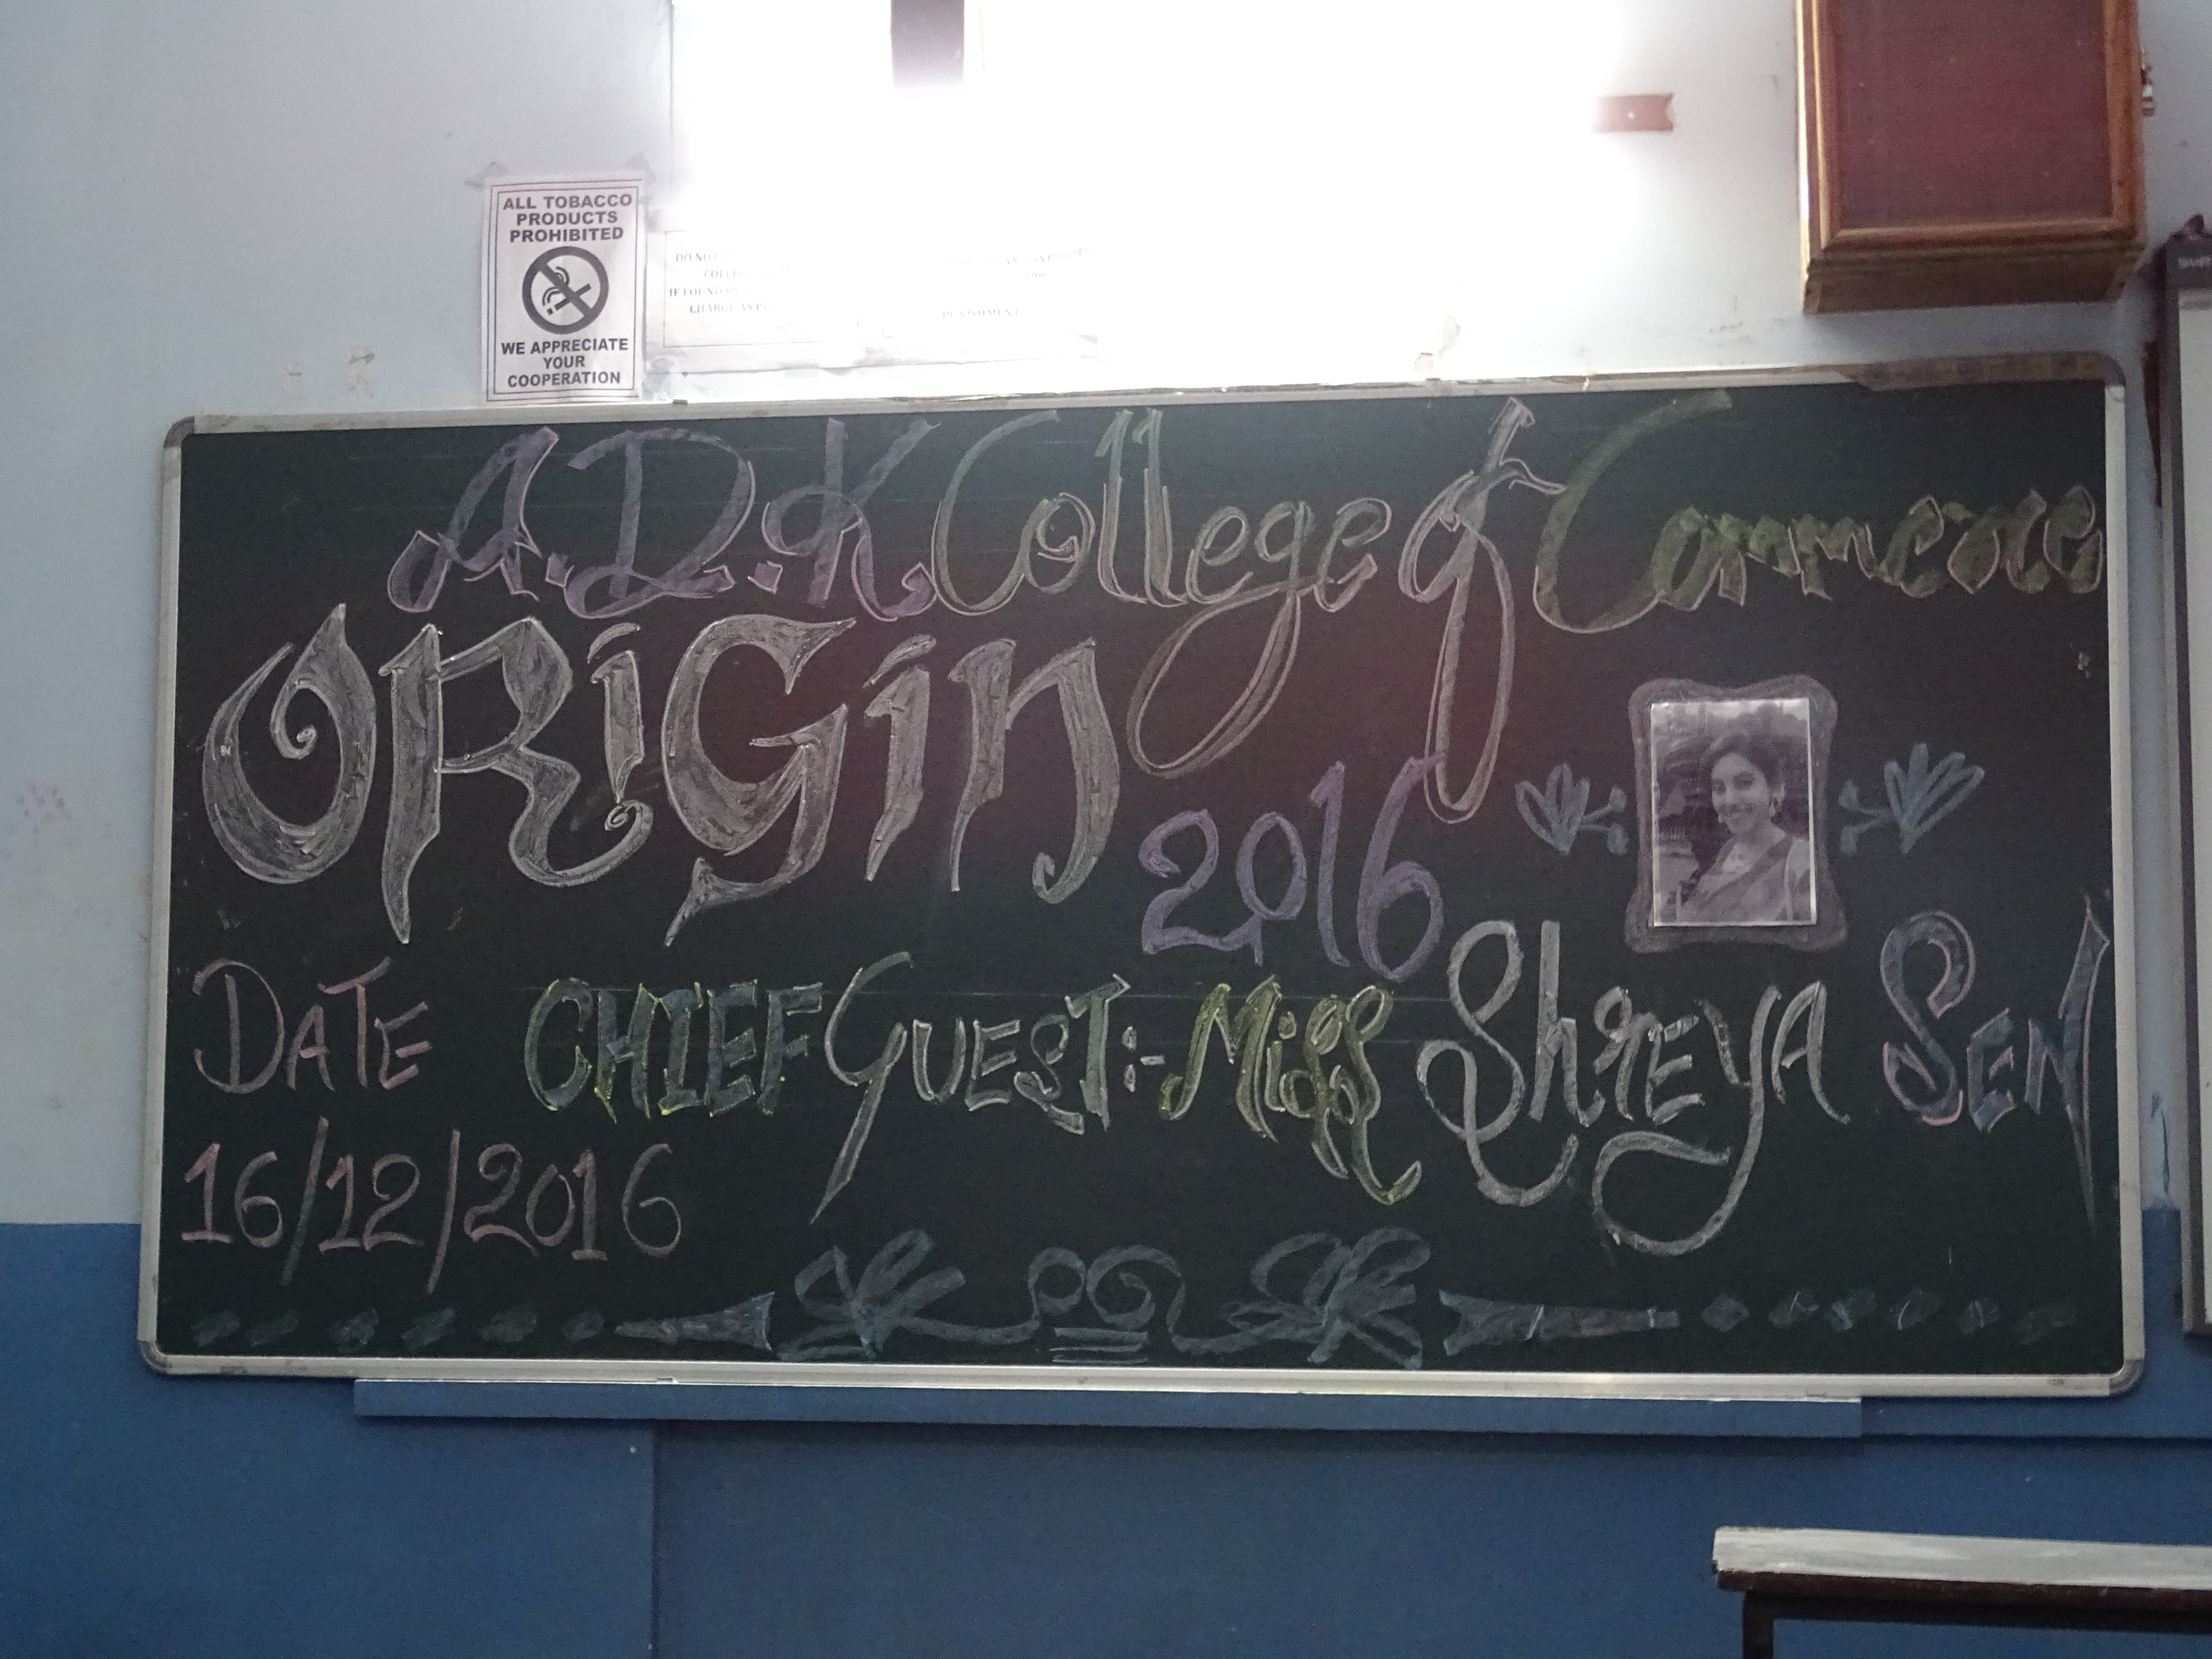 ALL TOBACCO
PRODUCTS
PROHIBITED
WE APPRECIATE
YOUR
COOPERATION
DO NOT
IF FOUND
CHARGE AS
PUNISHMENT
A.D.K College of Commerce
ORiGin
2016
DATE
16/12/2016
CHIEF GUEST:- Miss ShREYA SEN